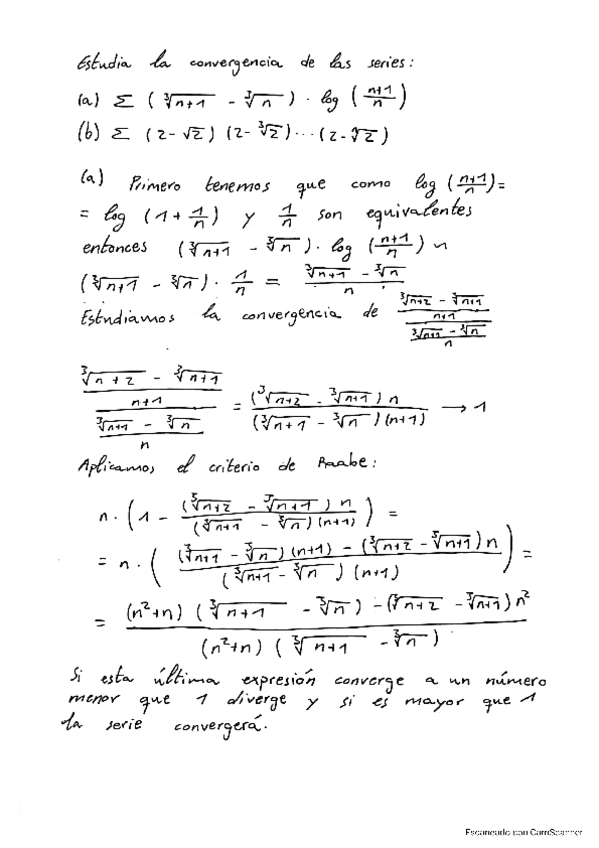 Estudia la convergencia de las series:
(a) Σ (∛n+1 - ∛n) · log (n+1/n)
(b) Σ (2-√2) (2-∛2)...(2-ⁿ√2)
(a) Primero tenemos que como log (n+1/n)=
= log (1+1/n) y 1/n son equivalentes
entonces (∛n+1 - ∛n) · log (n+1/n) ∼
(∛n+1 - ∛n) · 1/n = ∛n+1 - ∛n / n
Estudiamos la convergencia de (∛n+2 - ∛n+1 / n+1) / (∛n+1 - ∛n / n)
(∛n+2 - ∛n+1 / n+1) / (∛n+1 - ∛n / n) = (∛n+2 - ∛n+1) n / (∛n+1 - ∛n) (n+1) → 1
Aplicamos el criterio de Raabe:
n · (1 - (∛n+2 - ∛n+1) n / (∛n+1 - ∛n) (n+1)) =
= n · ((∛n+1 - ∛n) (n+1) - (∛n+2 - ∛n+1) n / (∛n+1 - ∛n) (n+1)) =
= (n²+n) (∛n+1 - ∛n) - (∛n+2 - ∛n+1) n² / (n²+n) (∛n+1 - ∛n)
Si esta última expresión converge a un número
menor que 1 diverge y si es mayor que 1
la serie convergerá.
Escaneado con CamScanner